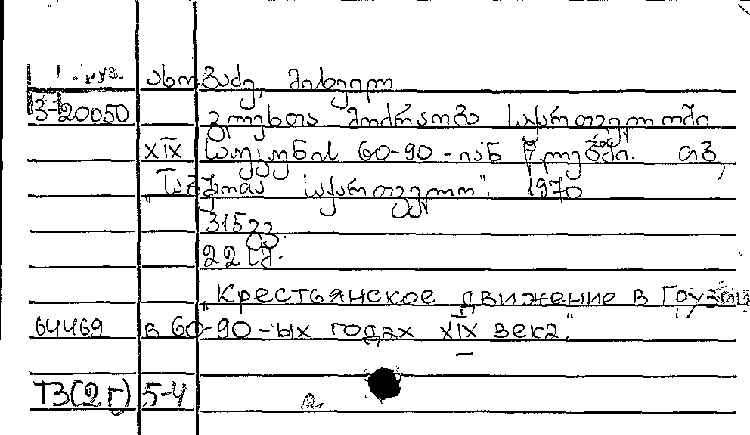 1. груз. ახობაძე, მიხეილ
3-20050 გლეხთა მოძრაობა საქართველოში
XIX საუკუნის 60-90-იან წლებში. თბ,
"საბჭოთა საქართველო". 1970
315 გვ
22 სმ.
"Крестьянское движение в Грузии
64469 в 60-90-ых годах XIX века."
ТЗ(2г) 5-4